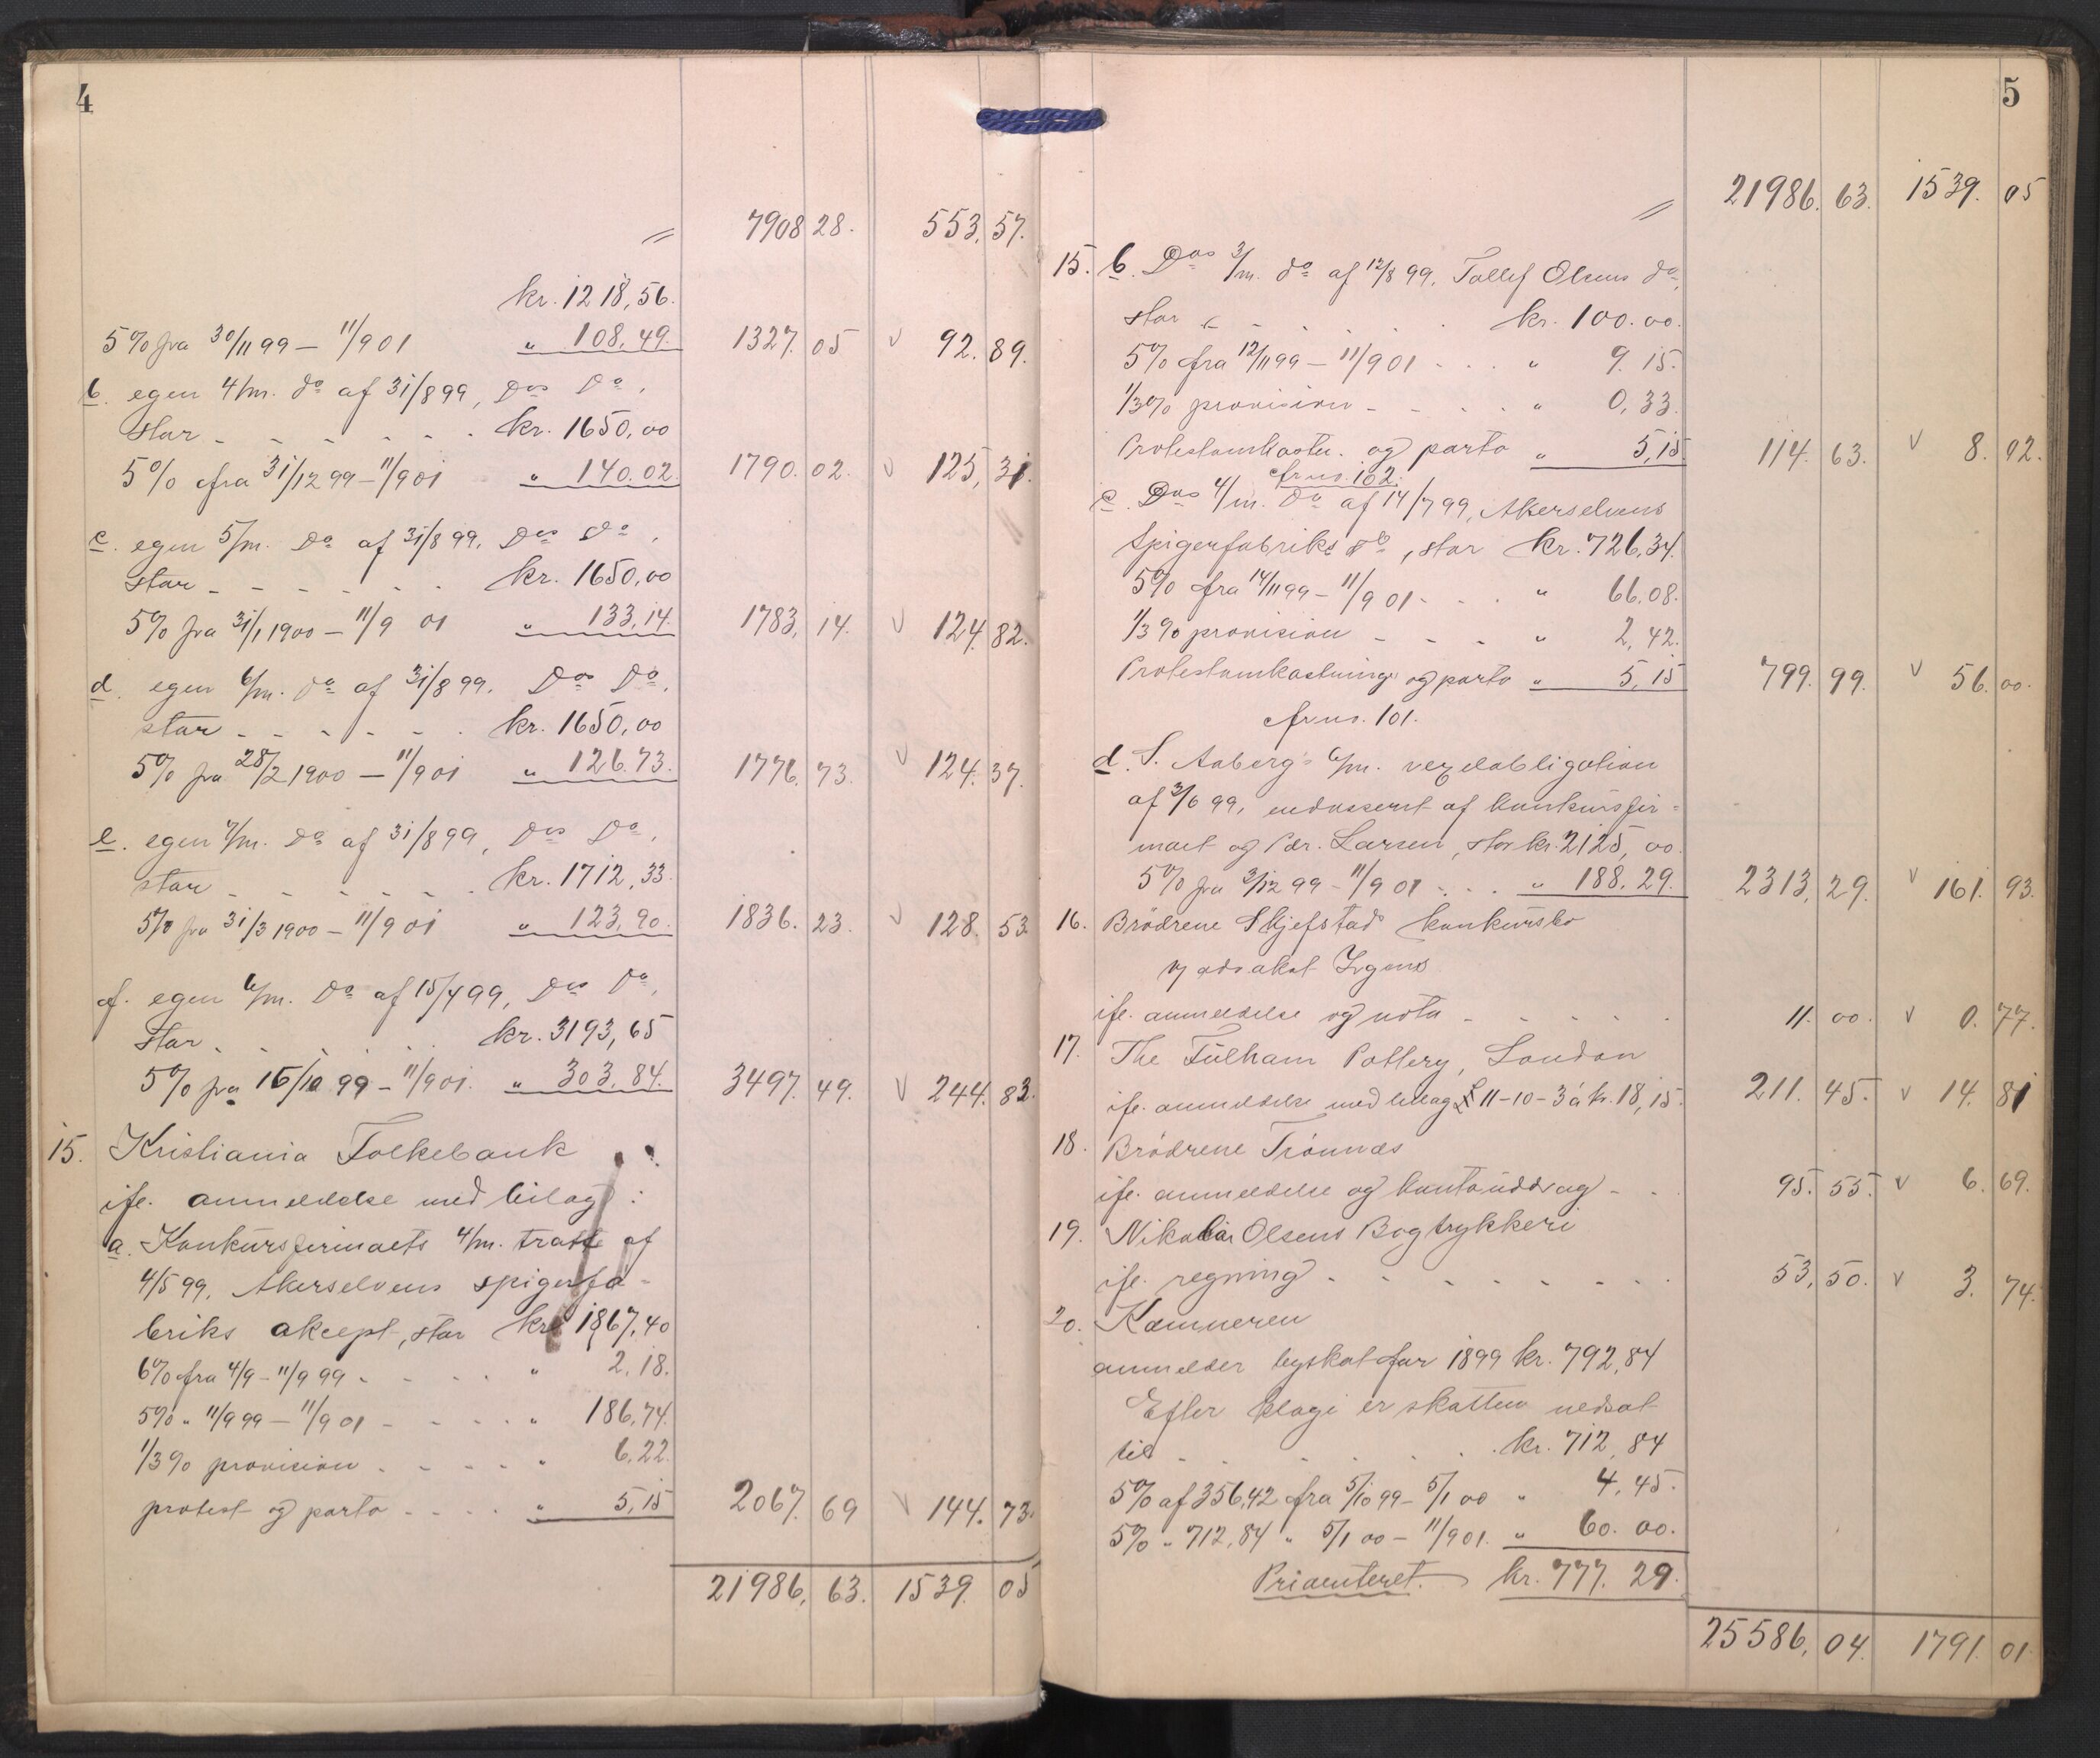 4
" 7908 28. 553,57.
kr. 1218,56.
5% fra 30/11 99 – 11/9 01 " 108,49. 1327. 05 v 92. 89.
b. egen 4/m. do af 31/8 99, Dos Do,
stor - - - - - - kr. 1650,00
5% fra 31/12 99 – 11/9 01 " 140.02. 1790. 02. v 125,31.
c. egen 5/m. Do af 31/8 99. Dos Do,
stor - - - - - - kr. 1650,00
5% fra 31/1 1900 – 11/9 01 " 133,14. 1783, 14. v 124.82.
d. egen 6/m. Do af 31/8 99. Dos Do,
stor - - - - - - kr. 1650,00
5% fra 28/2 1900 – 11/9 01 " 126.73. 1776, 73. v 124.37.
e. egen 7/m. Do af 31/8 99, Dos Do,
stor - - - - - - kr. 1712,33.
5% fra 31/3 1900 – 11/9 01 " 123,90. 1836. 23. v 128. 53.
f. egen 6/m. Do af 15/4 99, Dos Do,
stor - - - - - - kr. 3193,65
5% fra 15/10 99 – 11/9 01. " 303,84. 3497. 49. v 244. 83.
15. Kristiania Folkebank
ifl. anmeldelse med bilag:
a. Konkursfirmaets 4/m. tratte af
4/5 99, Akerselvens spigerfa-
briks aksept, stor kr. 1867,40
6% fra 4/9 – 11/9 99 - - - - " 2,18.
5% " 11/9 99 – 11/9 01 - - - - " 186,74.
1/3% provision - - - - - " 6,22.
protest og porto - - - - " 5,15 2067. 69 v 144. 73.
21986, 63. 1539. 05
5
" 21986. 63. 1539. 05
15. b. Dos 3/m. do af 12/8 99, Tollef Olsens do,
stor - - - - - kr. 100.00.
5% fra 12/11 99 – 11/9 01 - - - " 9.15.
1/3% provision - - - - " 0,33.
Protestomkostn. og porto " 5,15 114. 63. v 8. 02.
cfr no. 162.
c. Dos 4/m. Do af 14/7 99, Akerselvens
Spigerfabriks do, stor kr. 726,34.
5% fra 14/11 99 – 11/9 01 - - - " 66.08.
1/3% provision - - - - " 2,42.
Protestomkostninger og porto " 5,15 799. 99. v 56. 00.
cfr no. 101.
d. S. Aaberg's 6/m. vexelobligation
af 3/6 99, endosseret af konkursfir-
maet og Pdr. Larsen, stor kr. 2125,00.
5% fra 3/12 99 – 11/9 01 - - - " 188.29. 2313, 29. v 161. 93.
16. Brödrene Skjefstad konkursbo
v/ advokat Irgens
ifl. anmeldelse og nota - - - - - 11. 00. v 0. 77.
17. The Fulham Pottery, London
ifl. anmeldelse med bilag £ 11-10-3 á kr. 18,15. 211. 45. v 14. 81
18. Brödrene Trönnæs
ifl. anmeldelse og kontoudd​rag - - 95. 55. v 6. 69.
19. Nikolai Olsens Bogtrykkeri
ifl. regning - - - - - - - 53, 50. v 3. 74.
20. Kæmneren
anmelder byskat for 1899 kr. 792,84
Efter klage er skatten nedsat
til - - - - - - kr. 712,84
5% af 356,42 fra 5/10 99 – 5/1 00 " 4,45.
5% " 712,84 " 5/1 00 – 11/9 01. " 60.00.
Prioriteret. kr. 777.29.
25586, 04. 1791. 01